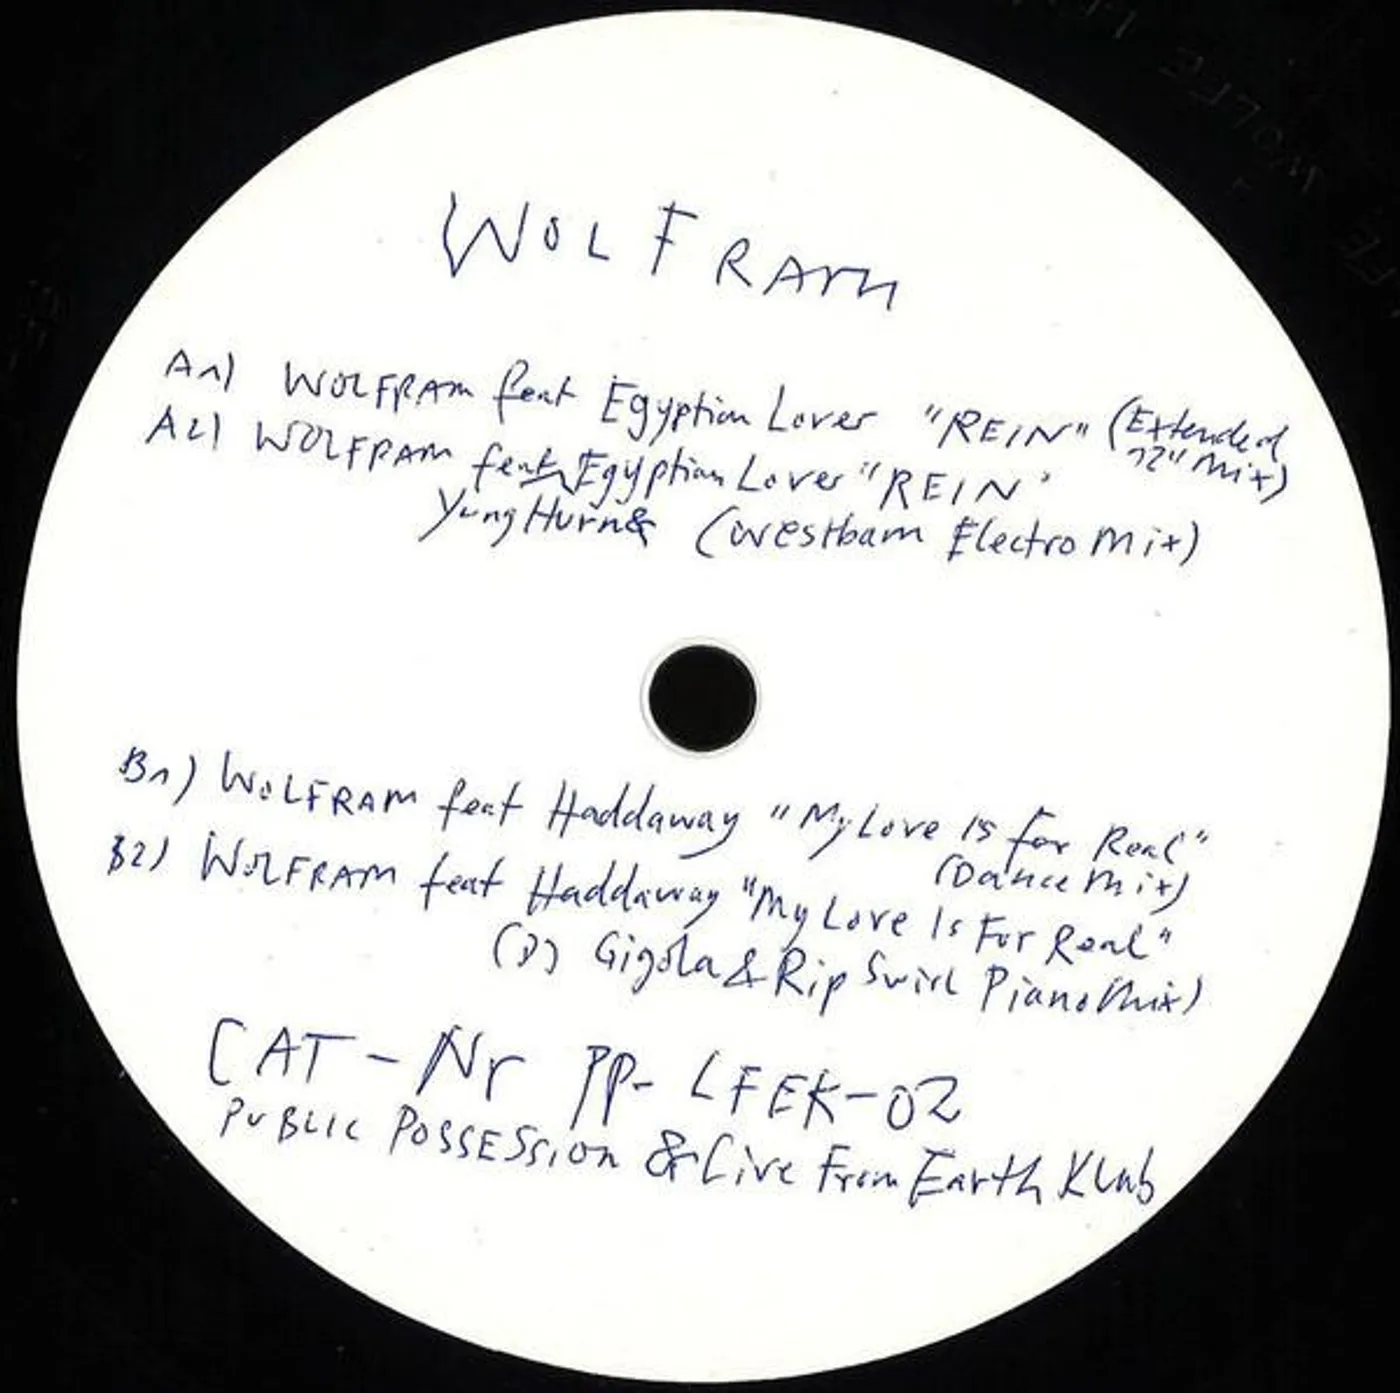 WOLFRAM
A1) WOLFRAM feat Egyptian Lover "REIN" (Extended
12" Mix)
A2) WOLFRAM feat Egyptian Lover "REIN"
Yung Hurn & (Westbam Electro Mix)
B1) WOLFRAM feat Haddaway "My Love Is For Real"
(Dance Mix)
B2) WOLFRAM feat Haddaway "My Love Is For Real"
Gigola & Rip Swirl Piano Mix)
CAT-Nr PP-LFEK-02
PUBLIC POSSESSION & Live From Earth Klub